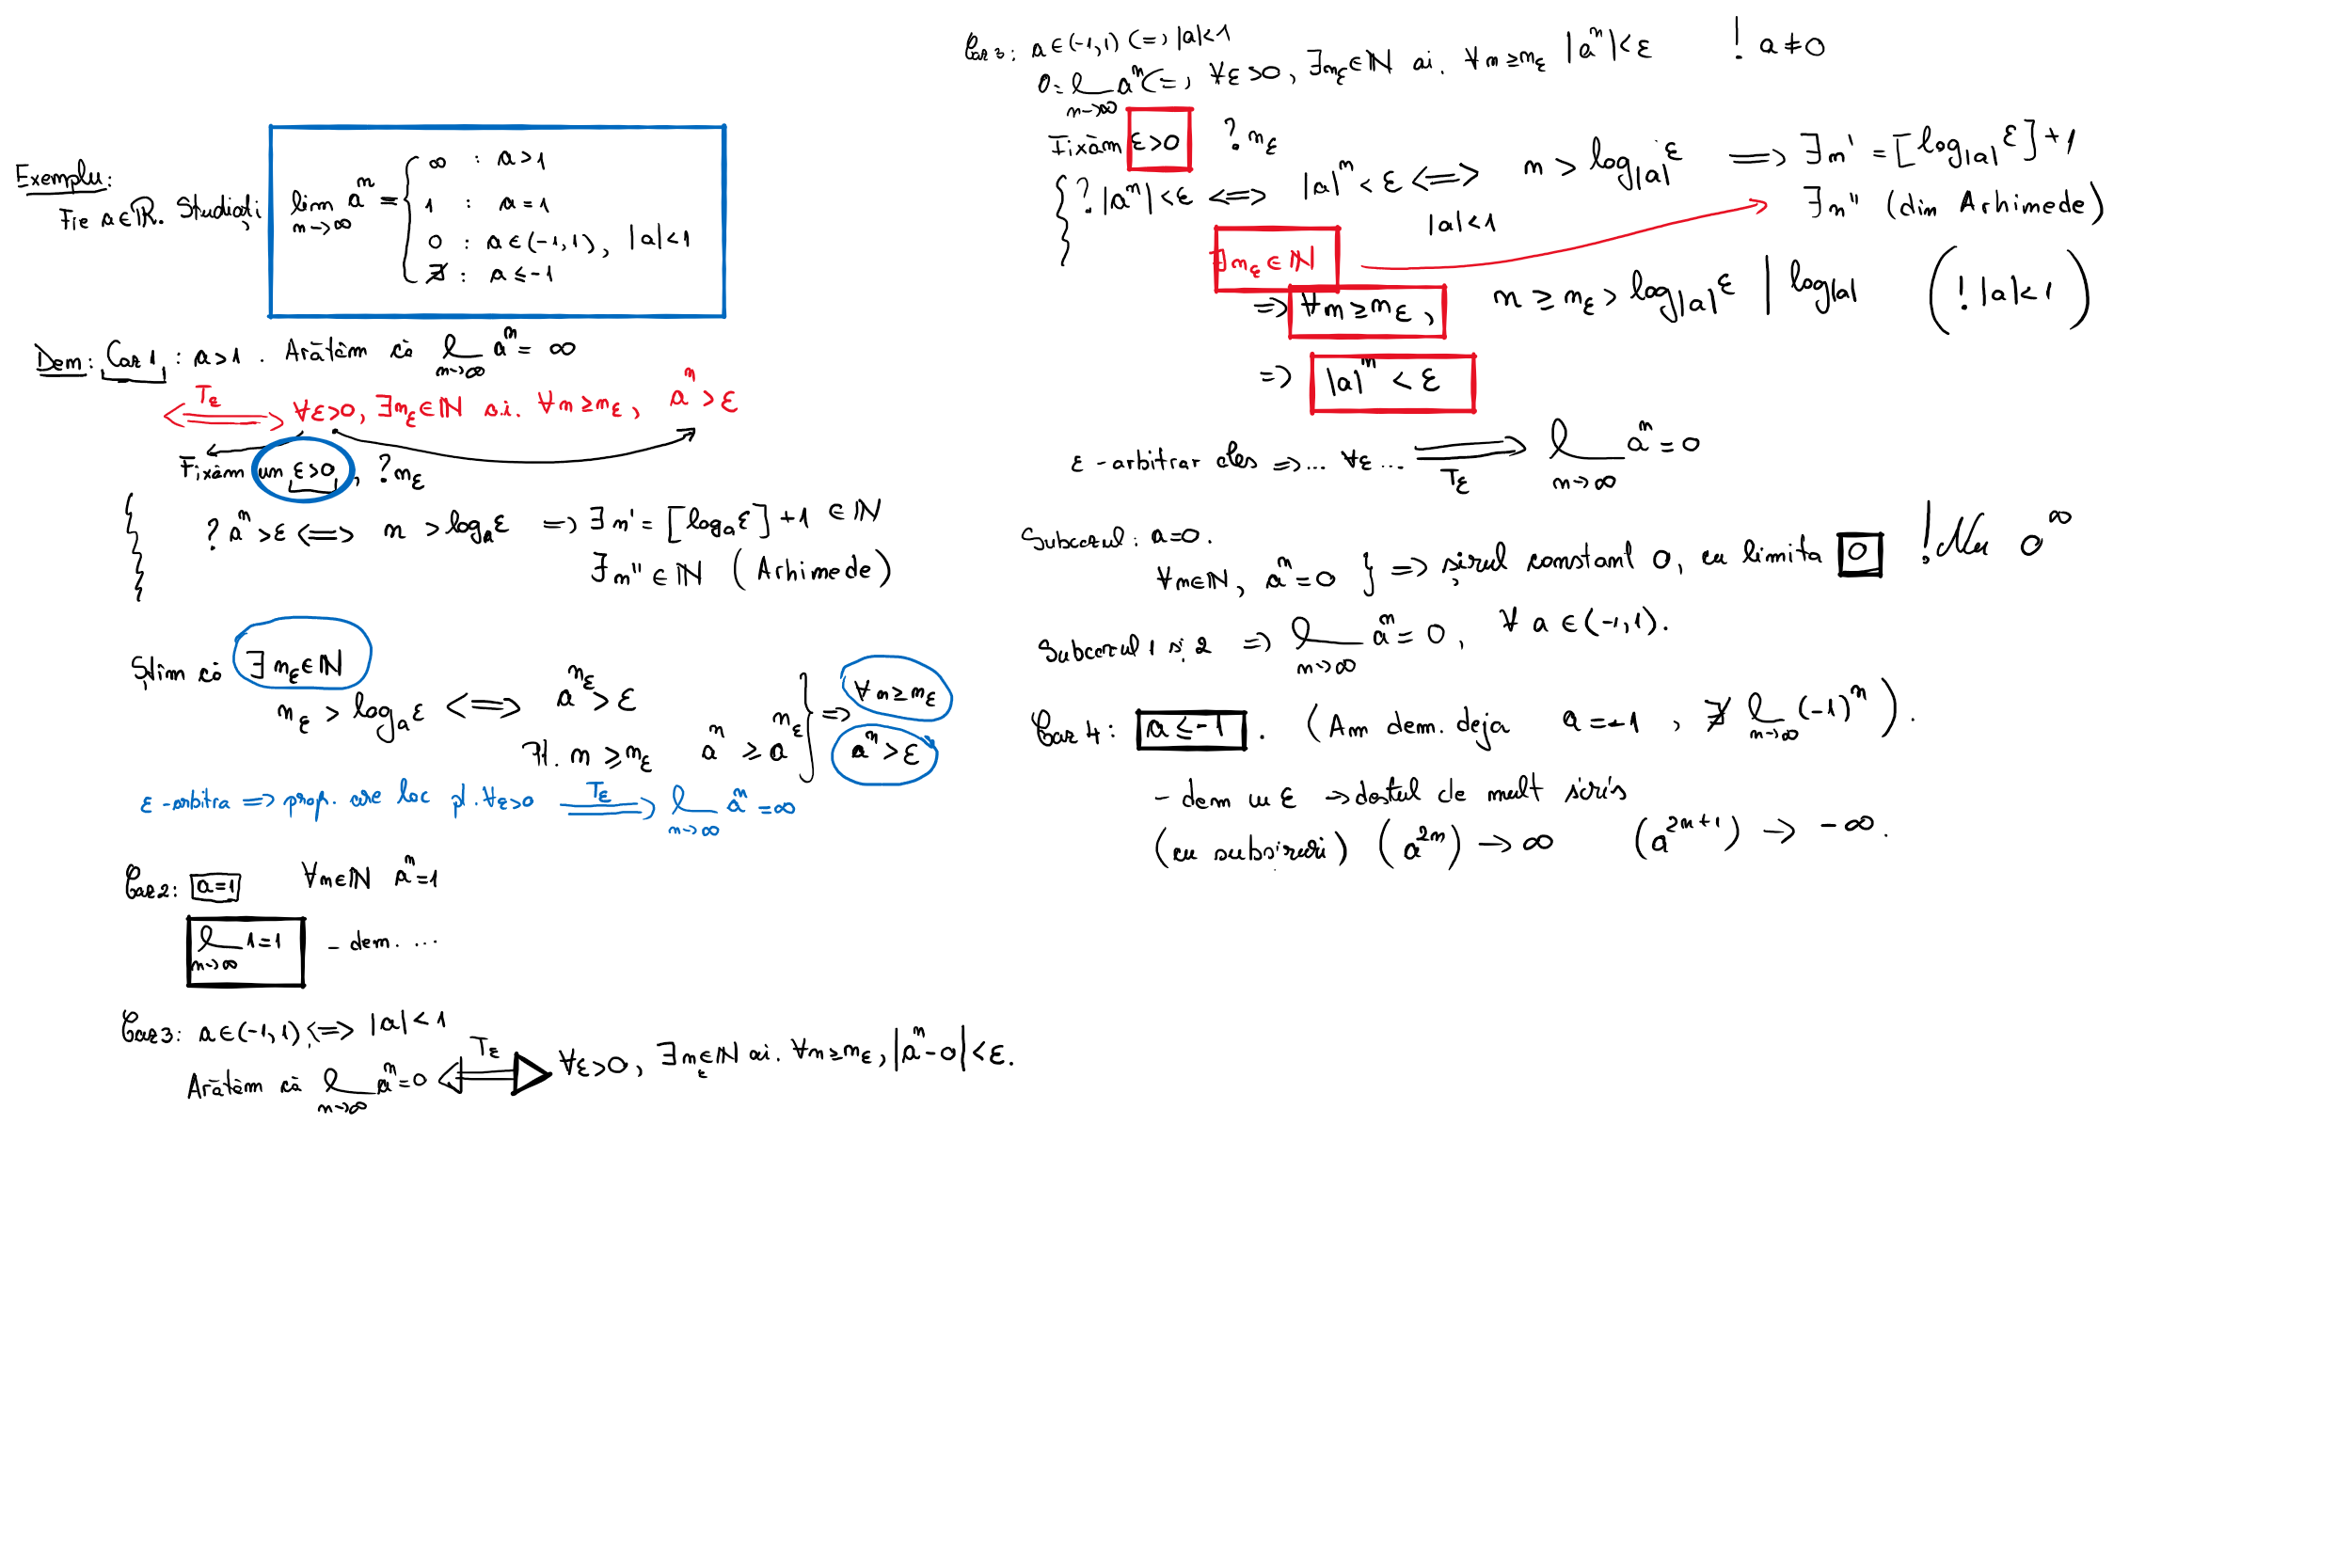 Exemplu:
Fie a∈ℝ. Studiați lim_{n→∞} aⁿ = { ∞ : a>1
1 : a=1
0 : a∈(-1,1), |a|<1
∄ : a≤-1
Dem: Caz 1: a>1. Arătăm că l__{n→∞} aⁿ = ∞
⟸T_ε⟹ ∀ε>0, ∃n_ε∈ℕ a.i. ∀n≥n_ε, aⁿ>ε
Fixăm un ε>0, ? n_ε
? aⁿ>ε ⟺ n>log_a ε ⟹ ∃n' = [log_a ε]+1 ∈ℕ
∃n''∈ℕ (Arhimede)
Știm că ∃n_ε∈ℕ
n_ε > log_a ε ⟺ a^{n_ε}>ε
Fl. n≥n_ε aⁿ ≥ a^{n_ε} } ⟹ ∀n≥n_ε
aⁿ>ε
ε-arbitra ⟹ prop. are loc pt. ∀ε>0 ⟹T_ε l__{n→∞} aⁿ=∞
Caz 2: a=1 ∀n∈ℕ aⁿ=1
l__{n→∞} 1=1 - dem. ...
Caz 3: a∈(-1,1) ⟺ |a|<1
Arătăm că l__{n→∞} aⁿ=0 ⟸T_ε⟹ ∀ε>0, ∃n_ε∈ℕ ai. ∀n≥n_ε, |aⁿ-0|<ε.
Caz 3: a∈(-1,1) (=) |a|<1
0= l__{n→∞} aⁿ (=) ∀ε>0, ∃n_ε∈ℕ ai. ∀n≥n_ε |aⁿ|<ε ! a≠0
Fixăm ε>0 ? n_ε
{ ? |aⁿ|<ε ⟺ |a|ⁿ<ε ⟺ n>log_{|a|} ε ⟹ ∃n' = [log_{|a|} ε]+1
|a|<1 ∃n'' (din Arhimede)
∃n_ε∈ℕ
⟹ ∀n≥n_ε, n≥n_ε>log_{|a|} ε | log_{|a|} (! |a|<1)
⟹ |a|ⁿ < ε
ε-arbitrar ales ⟹... ∀ε... ⟹T_ε l__{n→∞} aⁿ=0
Subcazul: a=0.
∀n∈ℕ, aⁿ=0 } ⟹ șirul constant 0, cu limita 0 ! Nu 0^∞
Subcazul 1 și 2 ⟹ l__{n→∞} aⁿ=0, ∀a∈(-1,1).
Caz 4: a≤-1. (Am dem. deja a=-1, ∄ l__{n→∞} (-1)ⁿ).
- dem cu ε → destul de mult scris
(cu subșiruri) (a^{2n}) → ∞ (a^{2n+1}) → -∞.